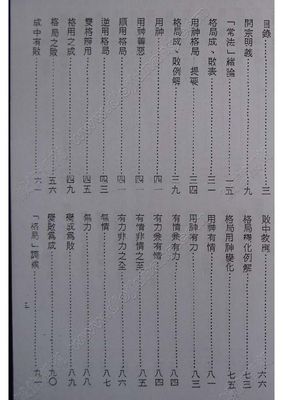 目錄⋯⋯三
開宗明義⋯⋯九
「常法」緒論⋯⋯一五
格局成、敗表
用神格局 提要
格局成、敗例解⋯⋯三九
用神⋯⋯四一
用神善惡⋯⋯四一
順用格局⋯⋯四一
逆用格局⋯⋯四三
雙格辭用⋯⋯四五
格用之成⋯⋯四九
格局之敗⋯⋯五六
成中有敗⋯⋯六一
敗中救應⋯⋯六六
格局變化例解⋯⋯七三
格局用神變化⋯⋯七五
用神有情⋯⋯八一
用神有力⋯⋯八三
有情兼有力⋯⋯八四
有力兼有情⋯⋯八四
有情非情之至⋯⋯八五
有力非力之全⋯⋯八六
無情⋯⋯八七
無力⋯⋯八八
變成為敗⋯⋯八八
變敗為成⋯⋯九〇
「格局」調候⋯⋯九一